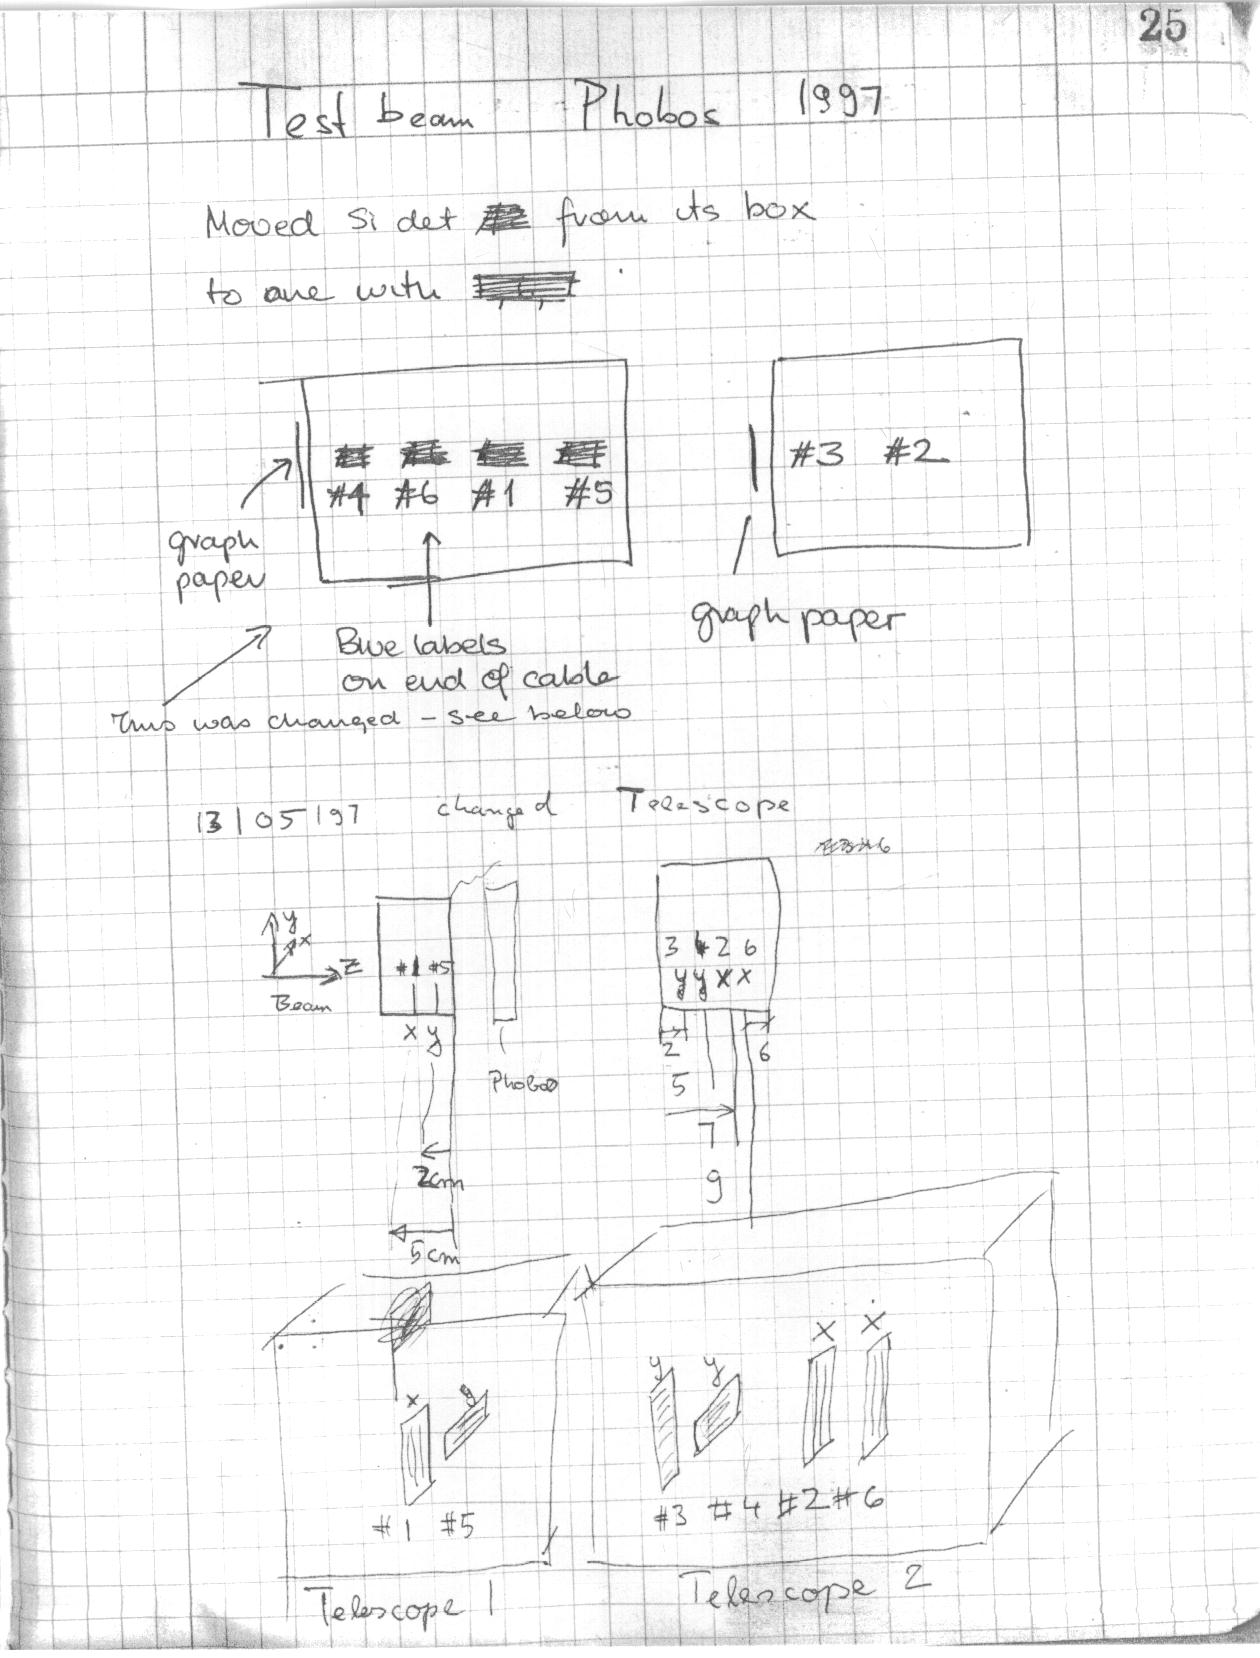 25
Test beam Phobos 1997
Moved Si det from its box
to one with
#4 #6 #1 #5
#3 #2
graph
paper
graph paper
Blue labels
on end of cable
This was changed - see below
13/05/97 changed Telescope
y
x
z
Beam
#1 #5
x y
Phobos
3 4 2 6
y y x x
2
6
5
7
9
2cm
5cm
x y
y y x x
#1 #5
#3 #4 #2 #6
Telescope 1
Telescope 2